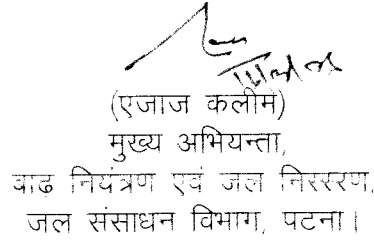 (एजाज कलीम)
मुख्य अभियन्ता,
वाढ नियंत्रण एवं जल निस्सरण,
जल संसाधन विभाग, पटना।